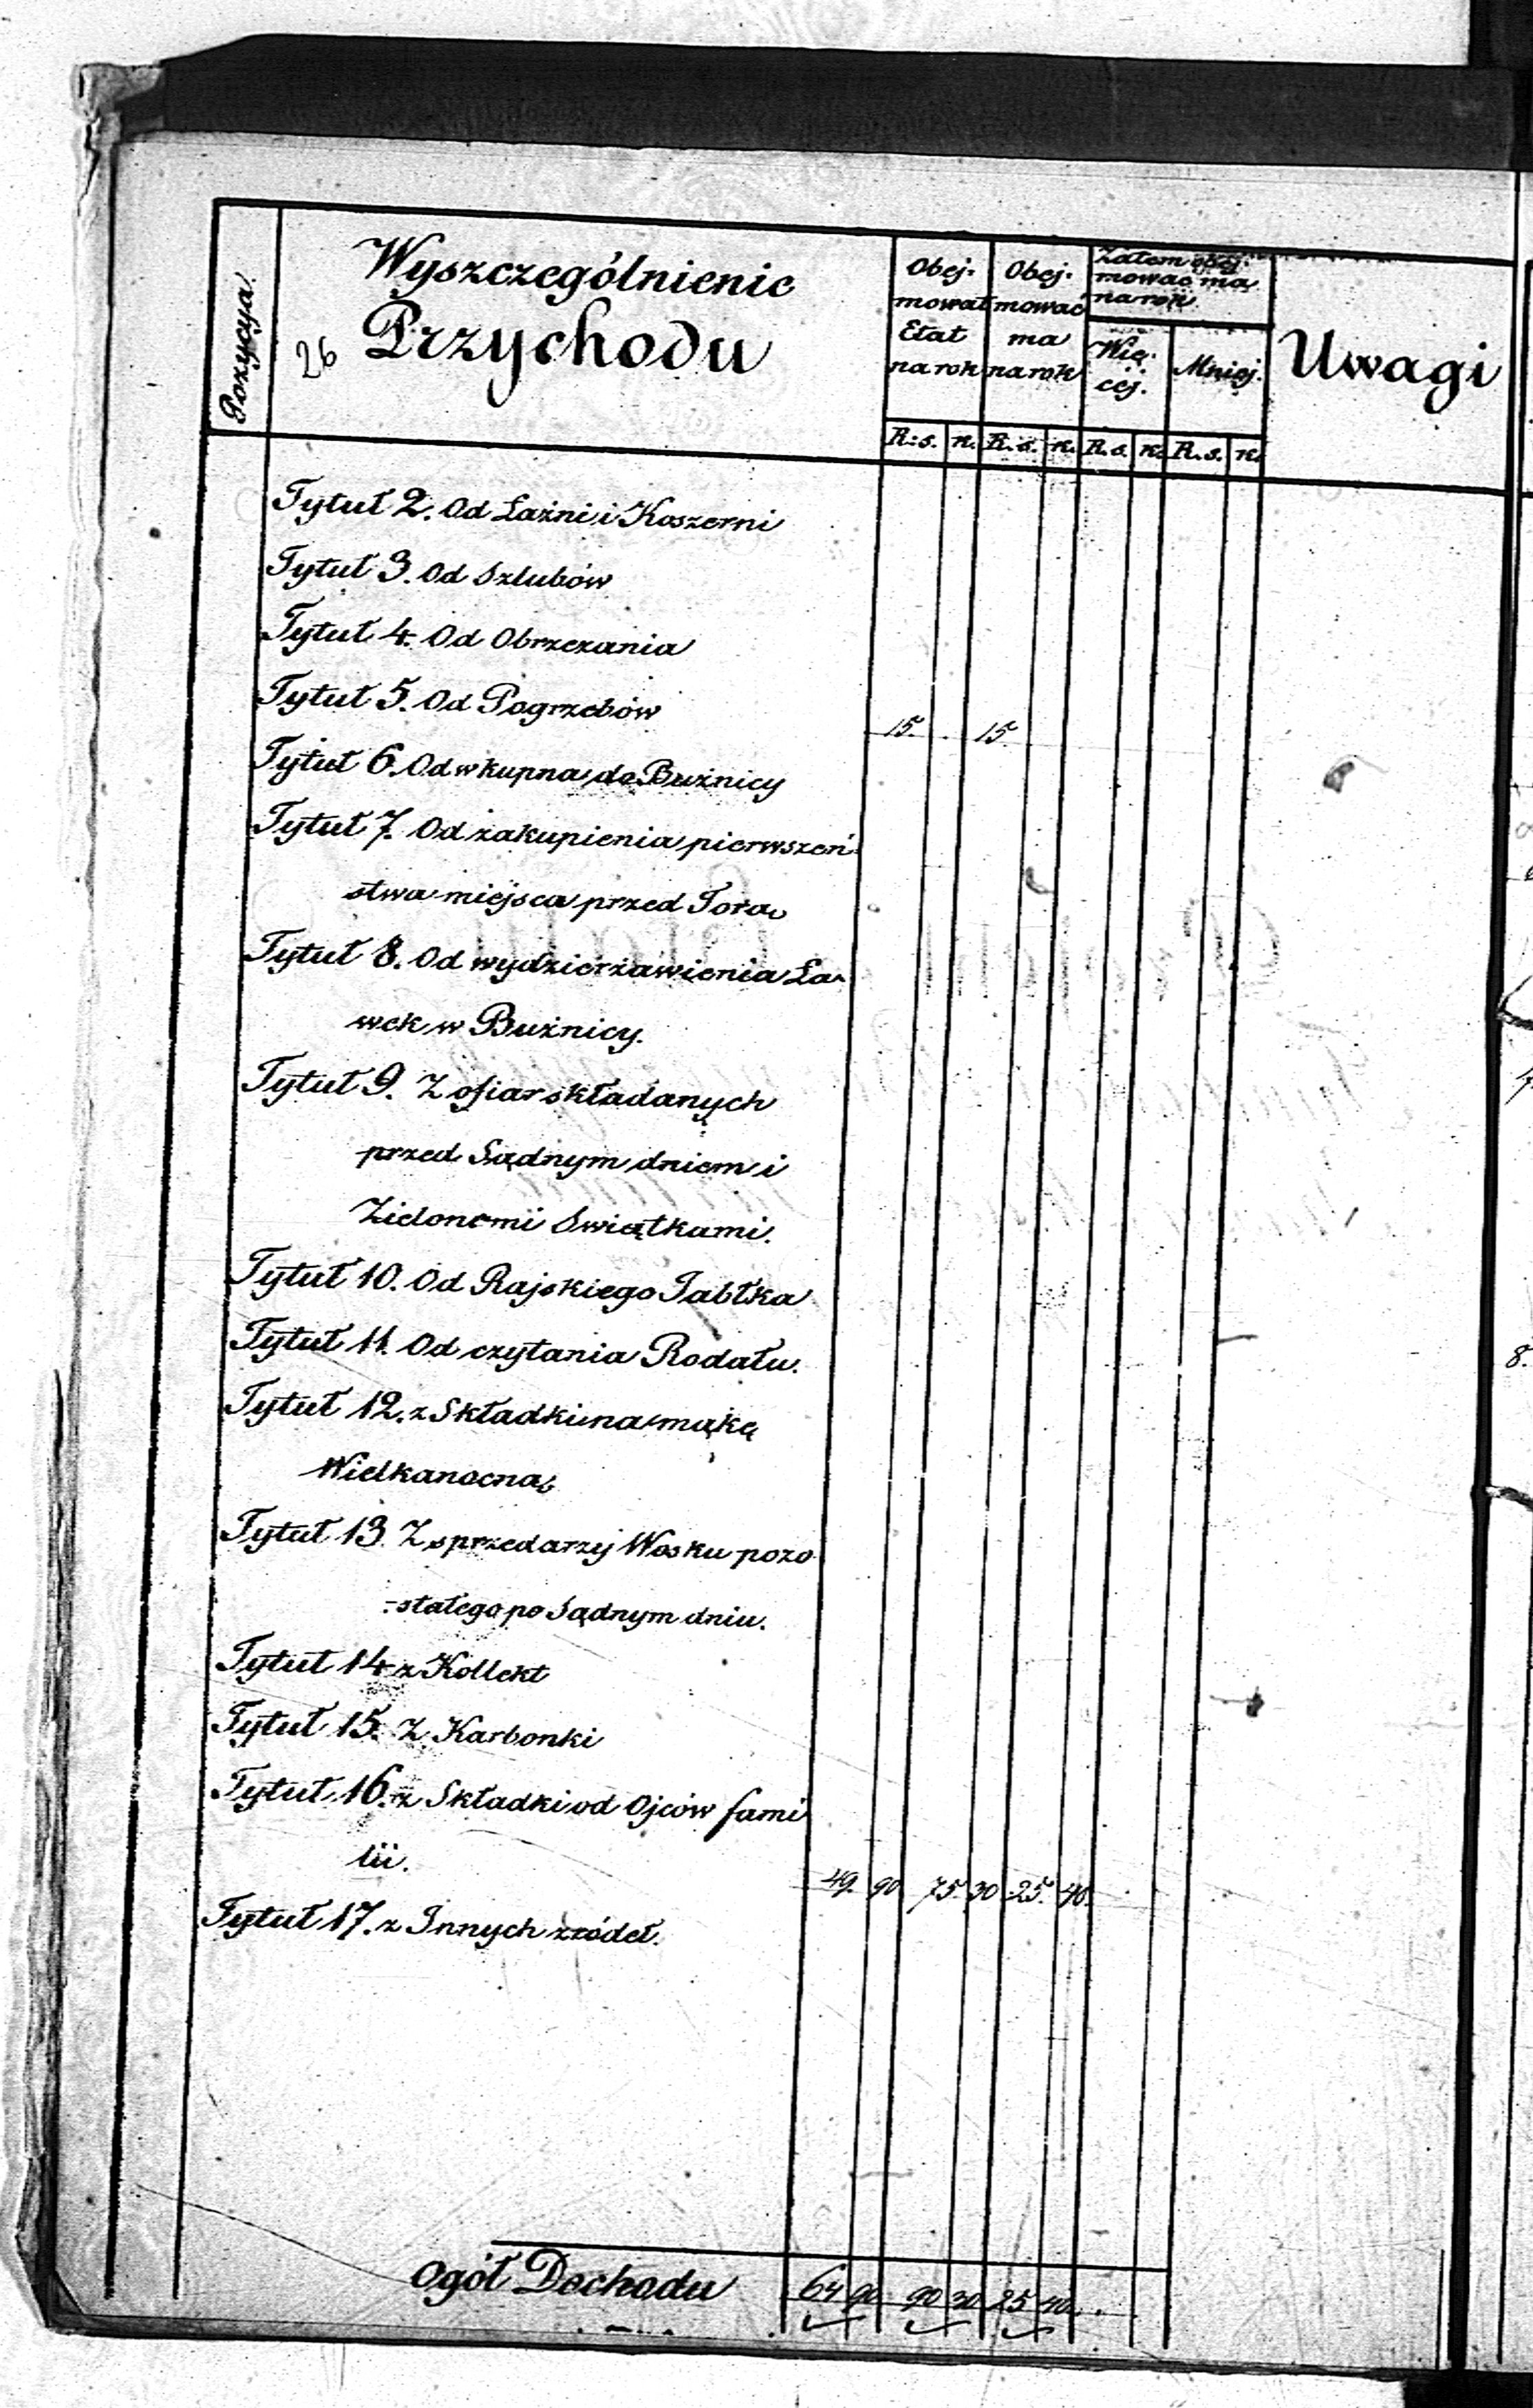 Pozycya.
26
Wyszczególnienie
Przychodu
Obej-
mował
Etat
na rok
Obej-
mować
ma
na rok
Zatem obej-
mować ma
na rok
Wię-
cej.
Mniej.
Uwagi
R:s. k. R.s. k. R.s. k. R.s. k.
Tytuł 2. Od Łaźni i Koszerni
Tytuł 3. Od Szlubów
Tytuł 4. Od Obrzezania
Tytuł 5. Od Pogrzebów 15. 15
Tytuł 6. Od wkupna do Bużnicy
Tytuł 7. Od zakupienia pierwszeń-
stwa miejsca przed Torą
Tytuł 8. Od wydzierżawienia Ła-
wek w Bużnicy.
Tytuł 9. Z ofiar składanych
przed Sądnym dniem i
Zielonemi Swiątkami.
Tytuł 10. Od Rajskiego Jabłka
Tytuł 11. Od czytania Rodału.
Tytuł 12. z Składki na mąkę
Wielkanocną
Tytuł 13. Z sprzedarzy Wosku pozo
-stałego po Sądnym dniu.
Tytuł 14 z Kollekt
Tytuł 15. Z Karbonki
Tytuł 16. z Składki od Ojców fami
lii. 49. 90 75. 30 25. 40.
Tytuł 17. z Innych zródeł.
Ogół Dochodu 64 90 90 30 25 40